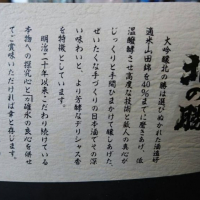 北の勝
大吟醸北の勝は選びぬかれた酒造好
適米山田錦を40%までに磨きあげ、低
温醗酵させ高度な技術と蔵人の真心が
じっくりと手間ひまかけて醸しあげた、
ぜいたくな手づくりの日本酒でその深
い味わいと、より芳醇なデリシャス香
を特徴としています。
明治二十年以来こだわり続けている
本物への探究心と
の良心を併せ
てご賞味いただければ幸と存じます。